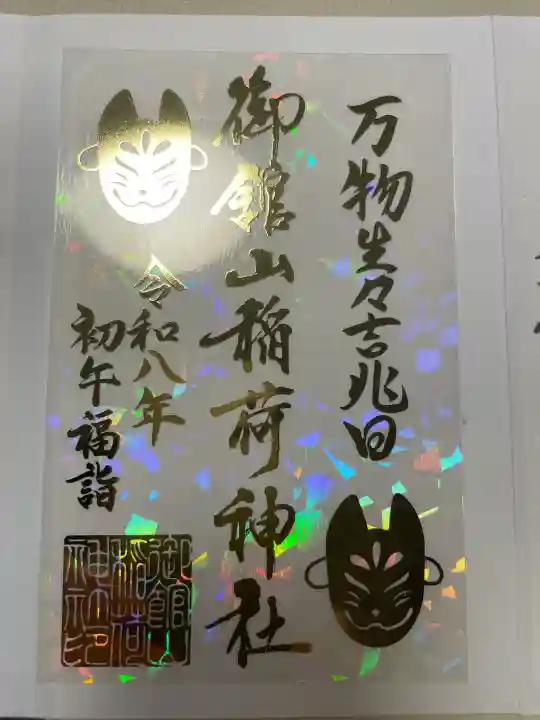 万物生々吉兆日
御館山稲荷神社
令和八年
初午福詣
御館山
稲荷
神社印